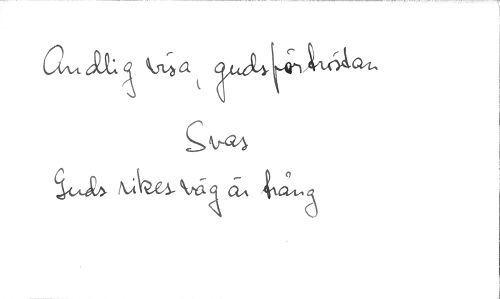 Andlig visa, gudsförtröstan
Svas
Guds rikes väg är trång